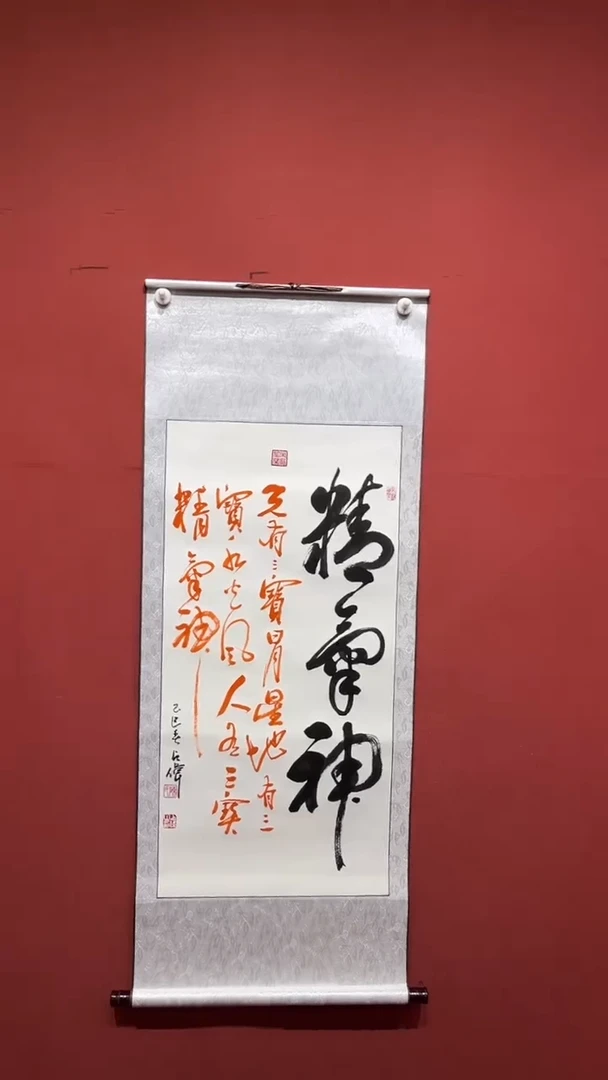 精氣神
天有三寶日月星地有三
寶水火風人有三寶
精氣神